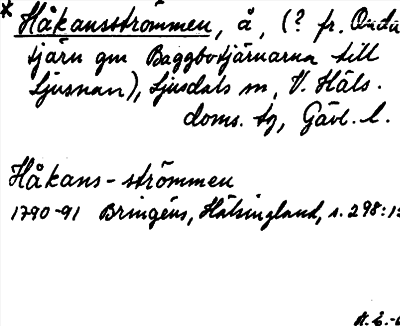 * Håkansströmmen, å, (? fr. Ondu
tjärn gm Baggbotjärnarna till
Ljusnan), Ljusdals sn, V. Häls.
doms. tg, Gävl. l.
Håkans-strömmen
1790-91 Bringéus, Hälsingland, s. 298:13